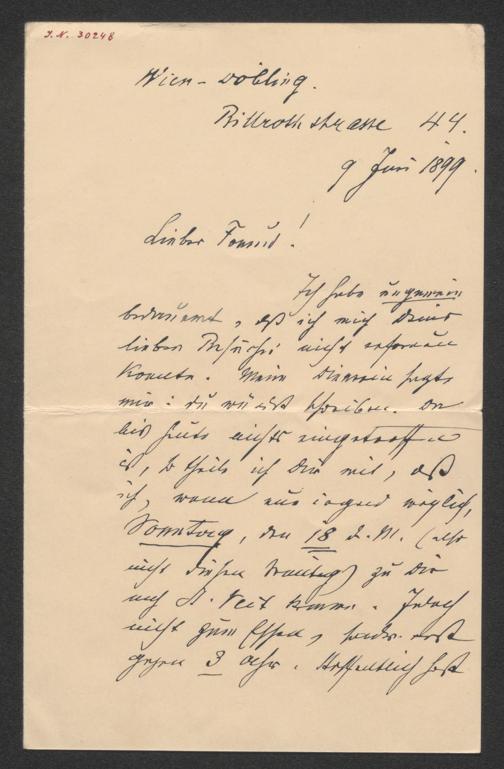 J.N. 30248
Wien-Döbling.
Billrothstrasse 44.
9 Juni 1899.
Lieber Freund!
Ich habe ungemein
bedauert, daß ich mich Deines
lieben Besuches nicht erfreuen
konnte. Meine Dienerin sagte
mir: du würdest schreiben. Da
bis heute nichts eingetroffen
ist, so theile ich Dir mit, daß
ich, wenn nur irgend möglich,
Sonntag, den 18 d. M. (also
nicht diesen Sonntag) zu Dir
nach St. Veit komme. Jedoch
nicht zum Essen, sondern erst
gegen 3 Uhr. Hoffentlich hast